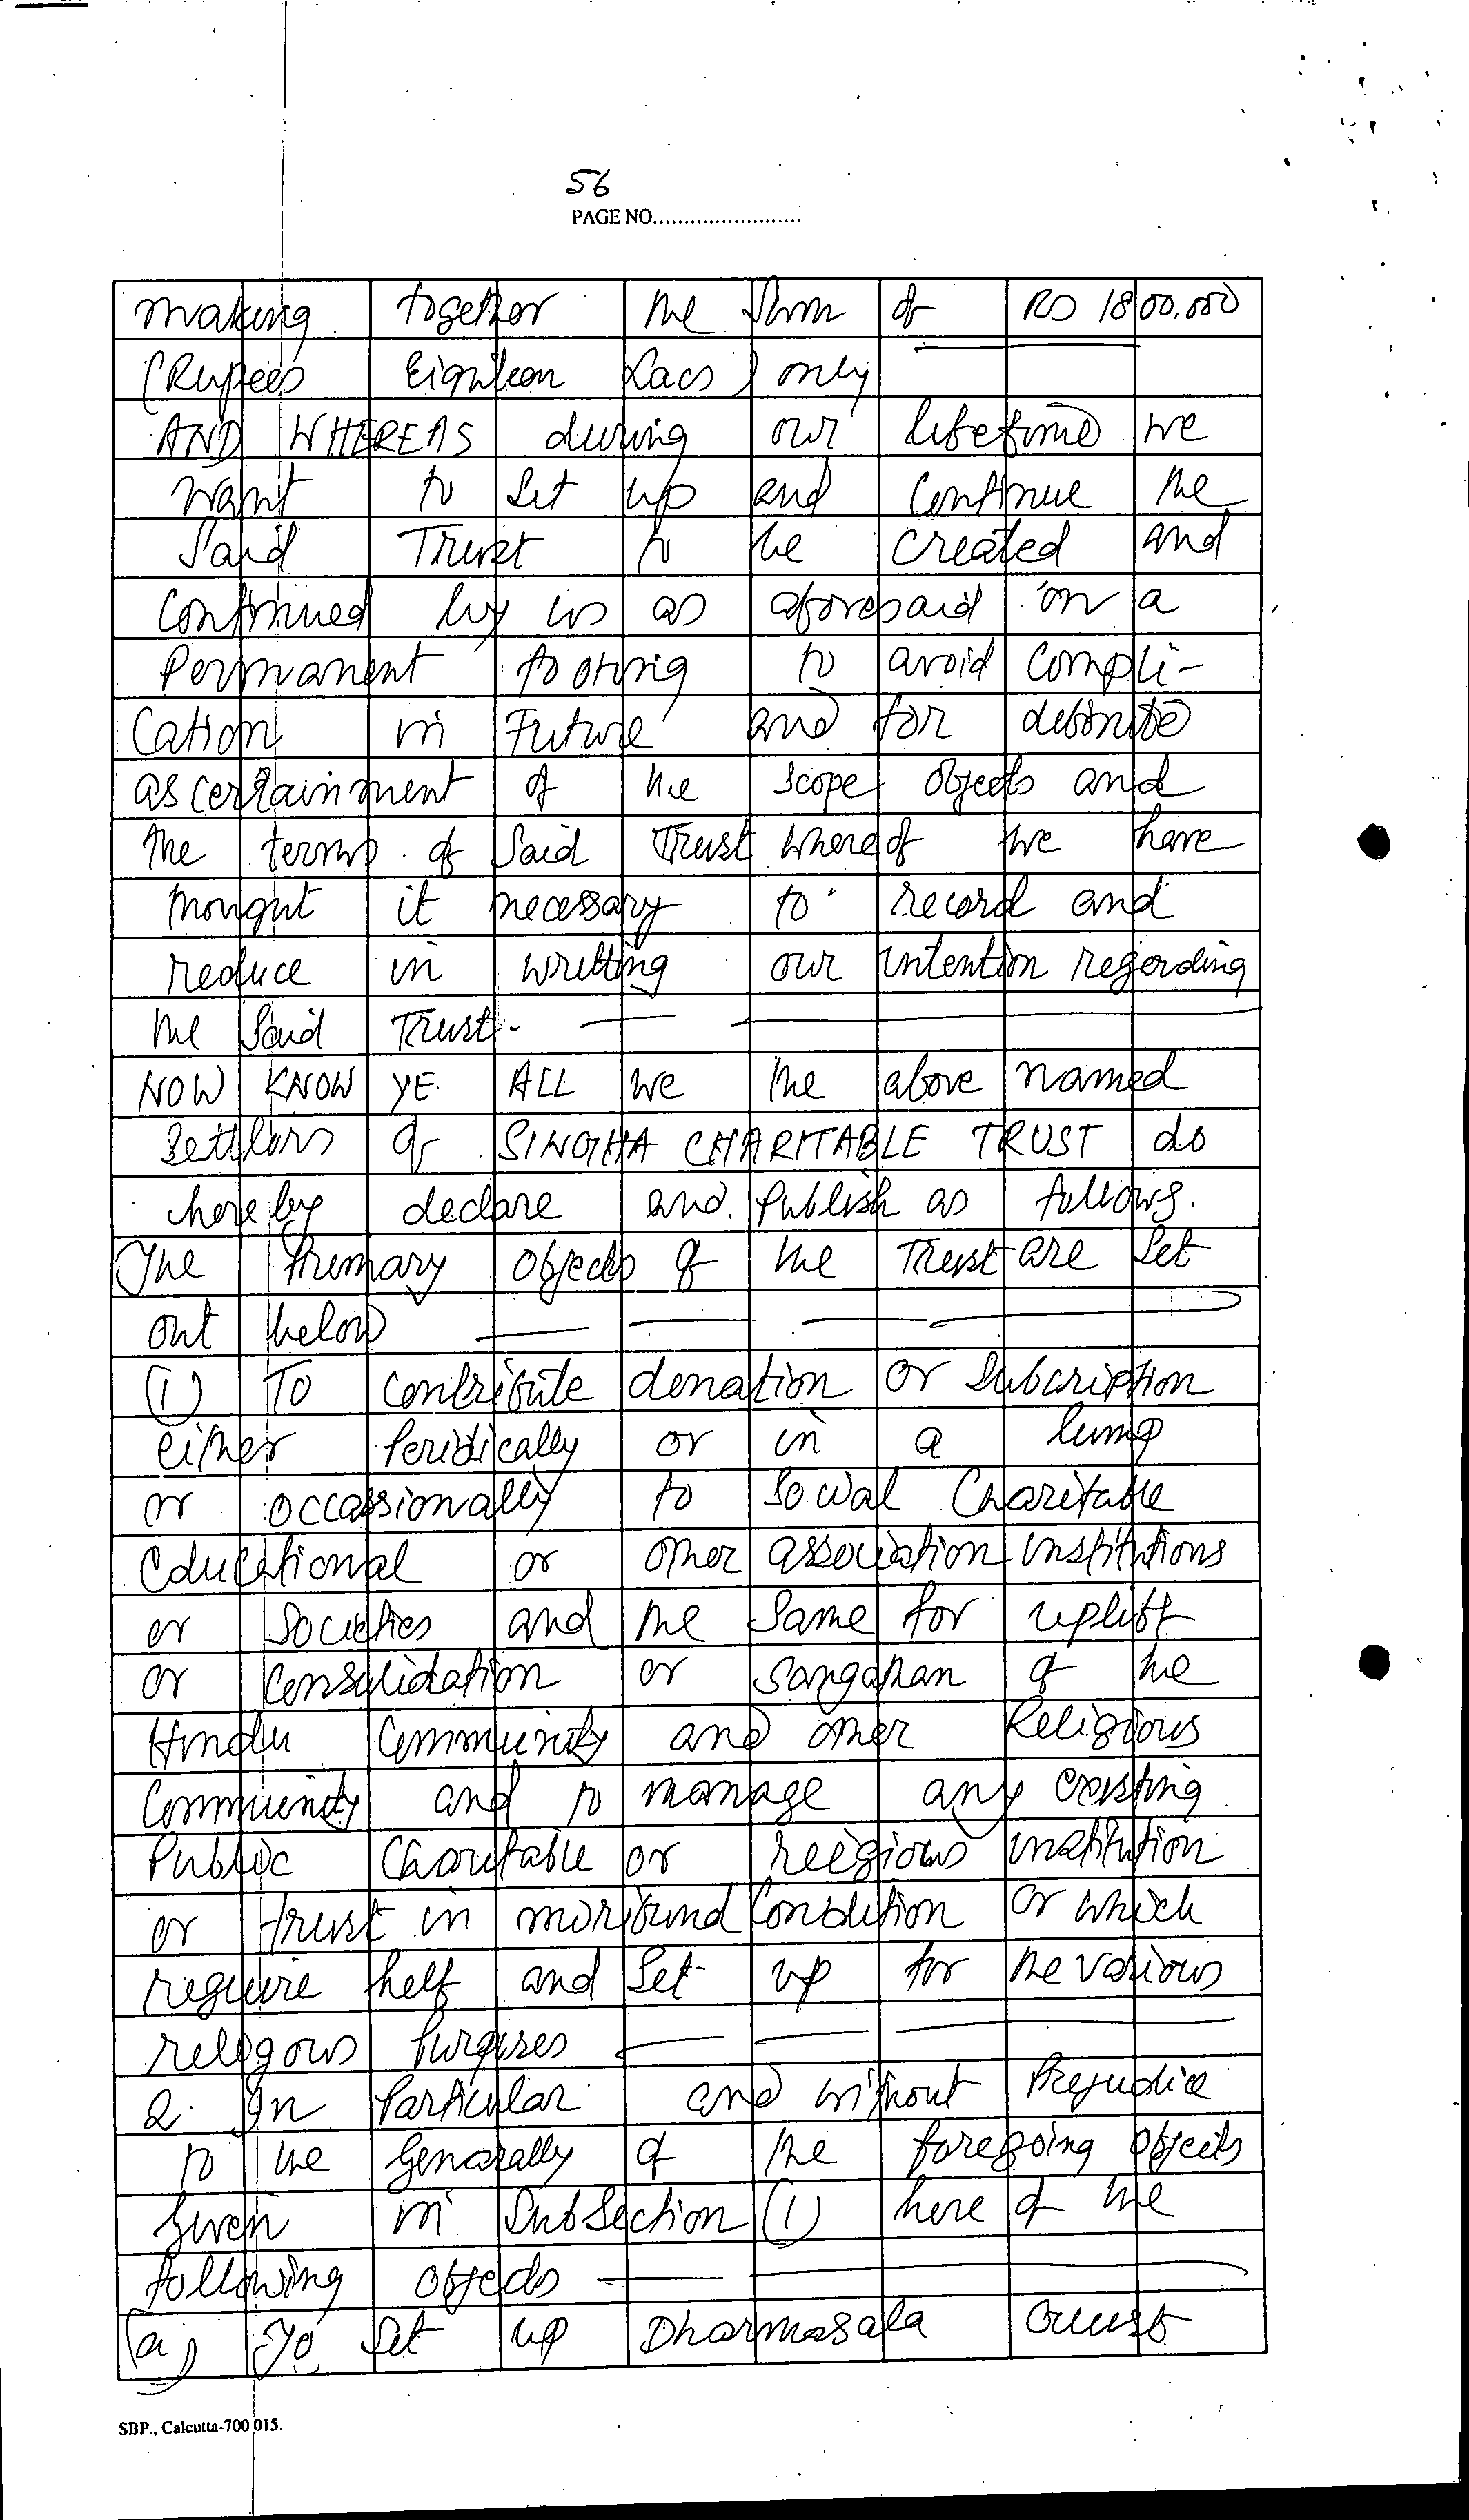 56
PAGE NO........................
making together the Sum of RS 1800.000
(Rupees Eighteen Lacs) only
AND WHEREAS during our lifetime we
want to Set up and continue the
Said Trust to be created and
continued by us as aforesaid on a
Permanent footing to avoid compli-
cation in Future and for definite
ascertainment of the scope objects and
the terms of Said Trust whereof we have
thought it necessary to record and
reduce in writting our intention regarding
the Said Trust. — —
NOW KNOW YE ALL we the above named
Settlors of SINGHA CHARITABLE TRUST do
hereby declare and Publish as follows.
The Primary objects of the Trust are Set
out below — — — —
(1) To contribute donation or Subcription
either Peridically or in a lump
or occassionally to Social Charitable
Educational or other association institutions
or Societies and the Same for uplift
or Consolidation or Sangathan of the
Hindu Community and other Religious
Community and to manage any existing
Public Charitable or religious institution
or trust in moribund Condition or which
require help and Set up for the various
religous Purposes — — —
2. In Particular and without Prejudice
to the Generally of the foregoing objects
Given in SubSection (1) here of the
following objects — —
(a) To Set up Dharmasala Guest
SBP., Calcutta-700 015.